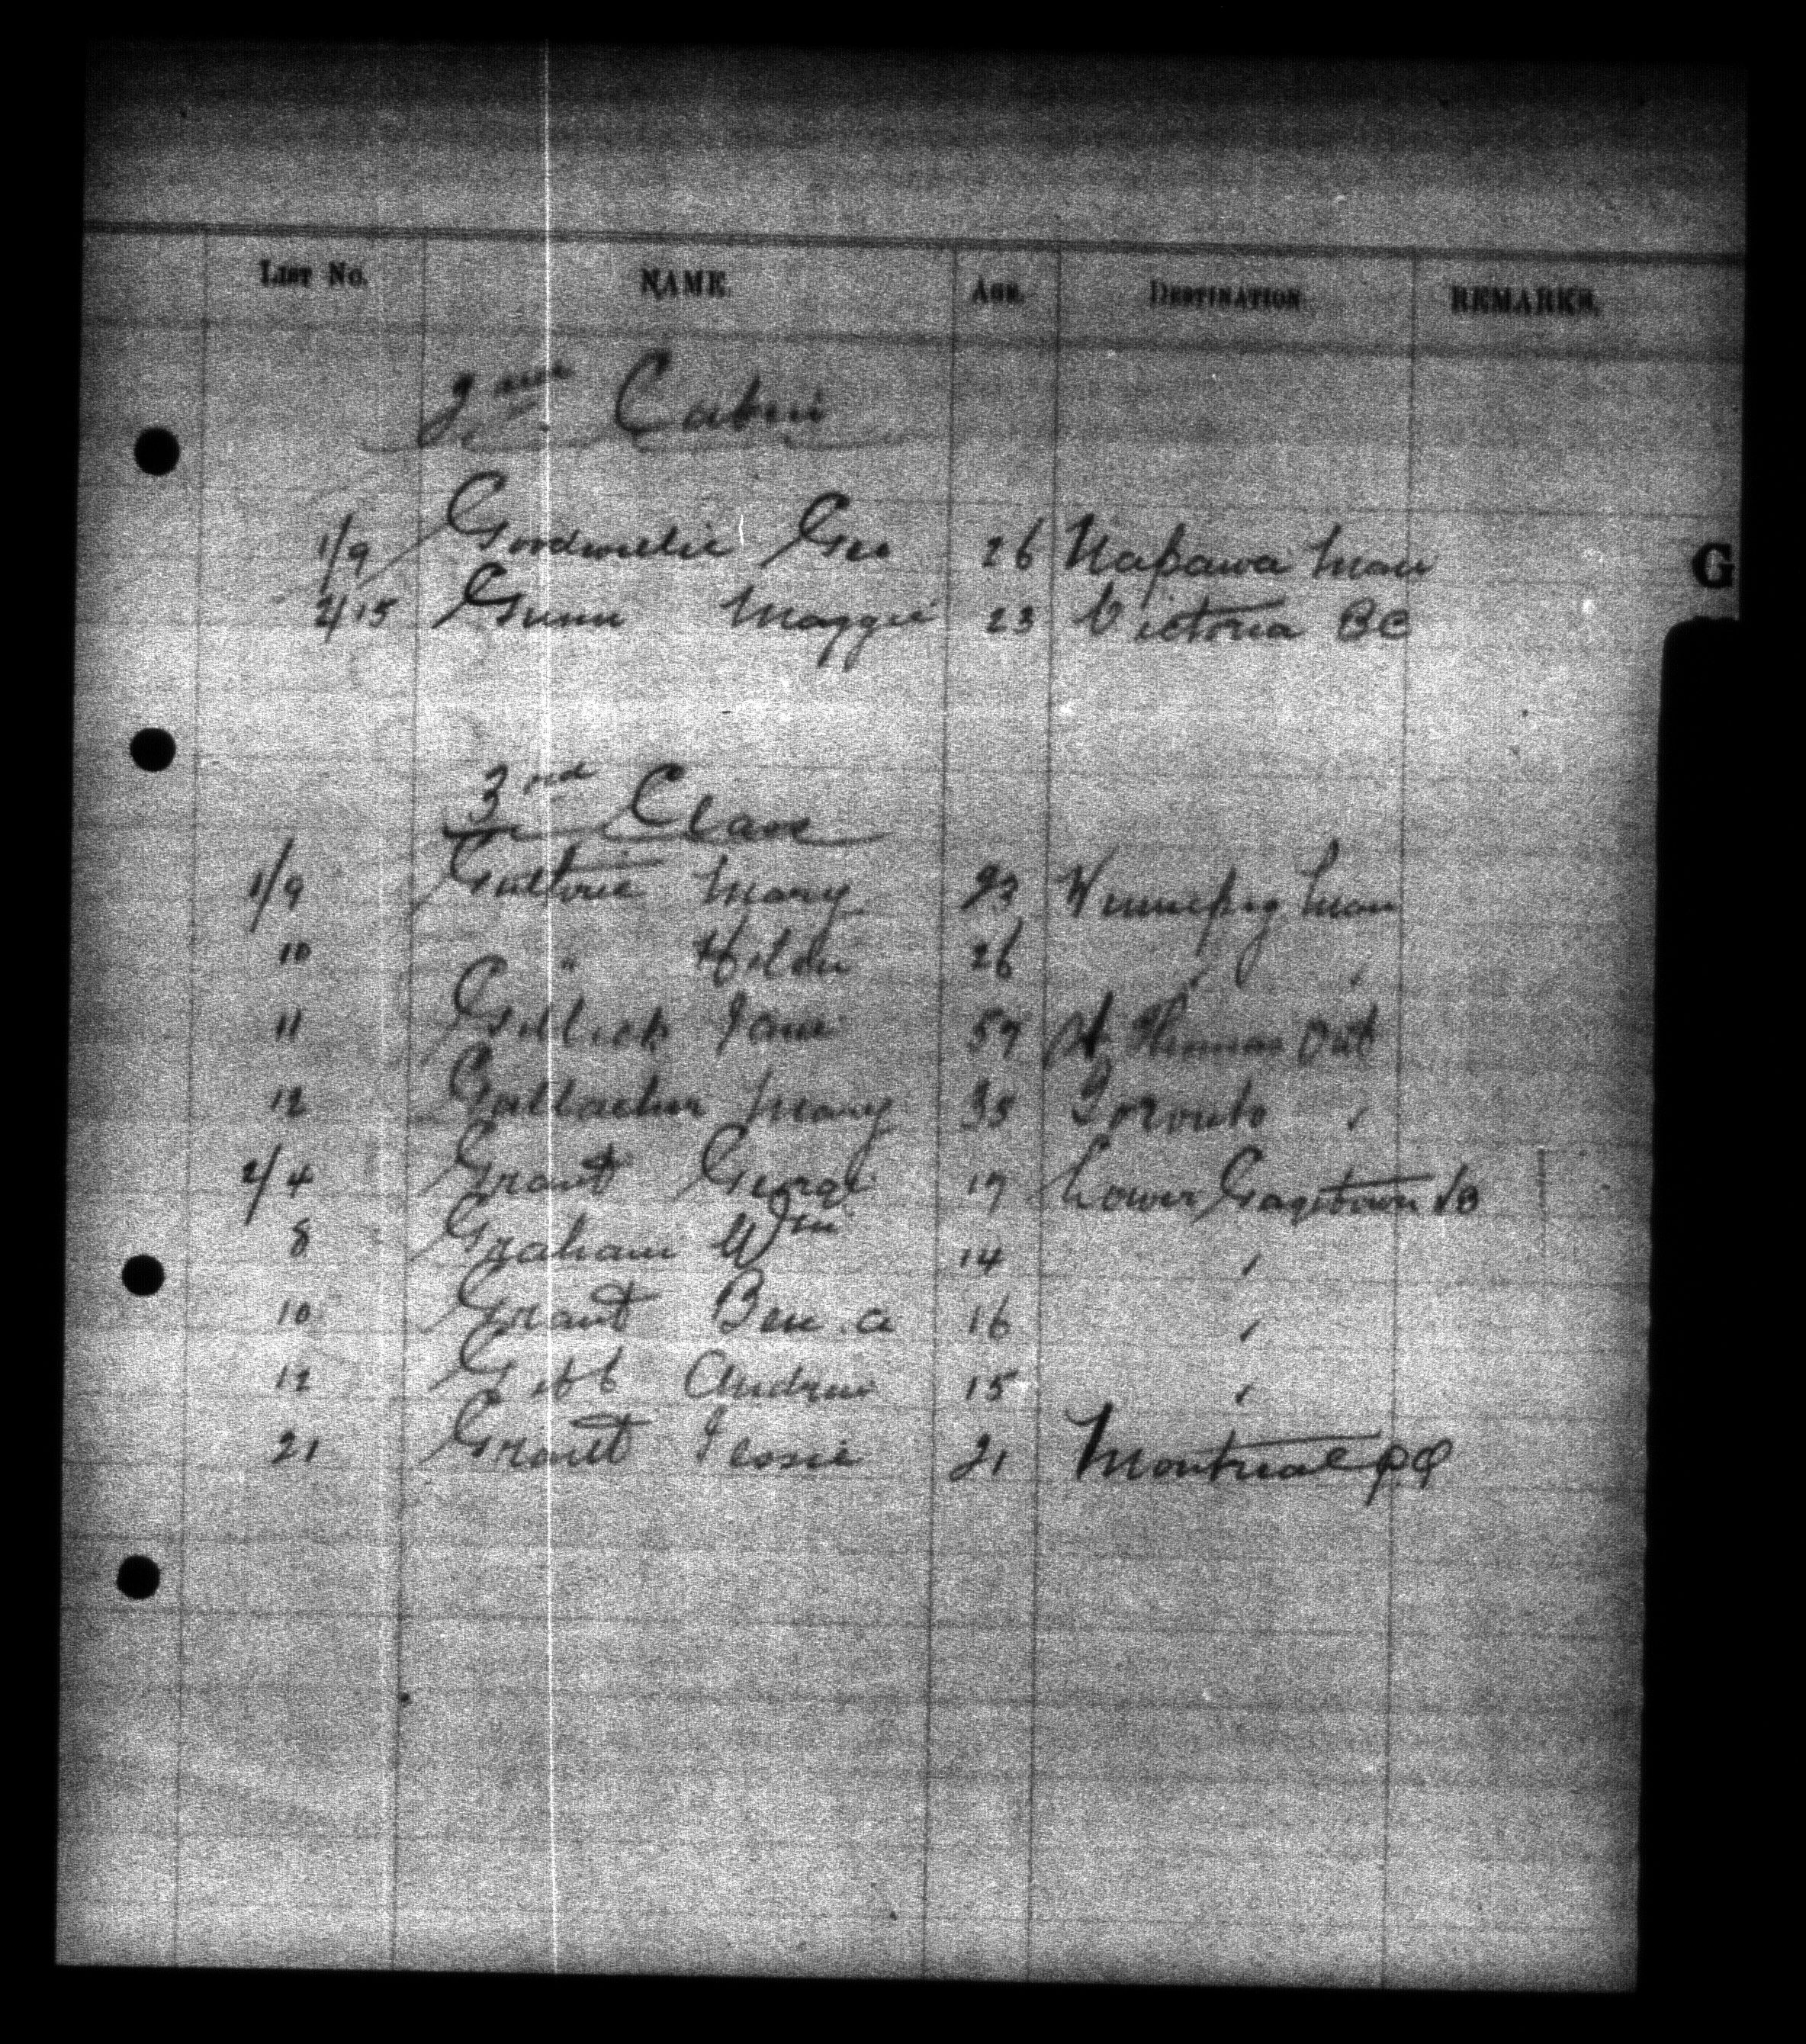 LIST No. NAME. AGE. DESTINATION. REMARKS.
2nd Cabin
1/9 Geo 26 Napawa Man
G
2/15 Gunn Maggie 23 Victoria BC
3rd Class
1/9 Guthrie Mary 23 Winnipeg Man
10 " Hilda 26 " "
11 Gillick Jane 57 St Thomas Ont
12 Gallacher Mary 35 Toronto "
2/4 Grant George 17 Lower Gagetown NB
8 Graham Wm 14 "
10 Grant Ben. a 16 "
12 Gibb Andrew 15 "
21 Grant Jessie 21 Montreal PQ